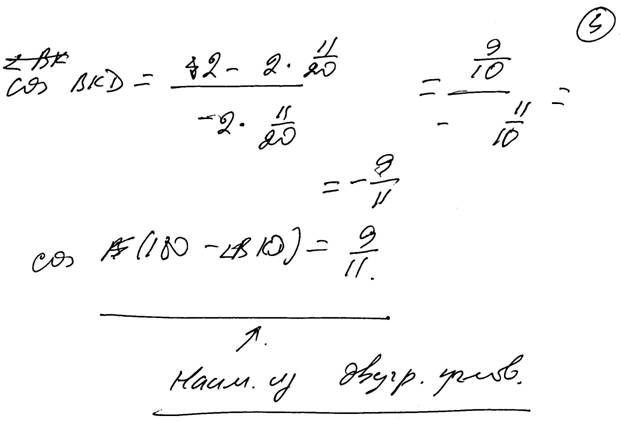 ③
cos BKD = (2 - 2 · 11/20) / (-2 · 11/20) = (9/10) / (- 11/10) =
= - 9/11
cos (180 - ∠BKD) = 9/11.
↑.
Наим. из двугр. углов.